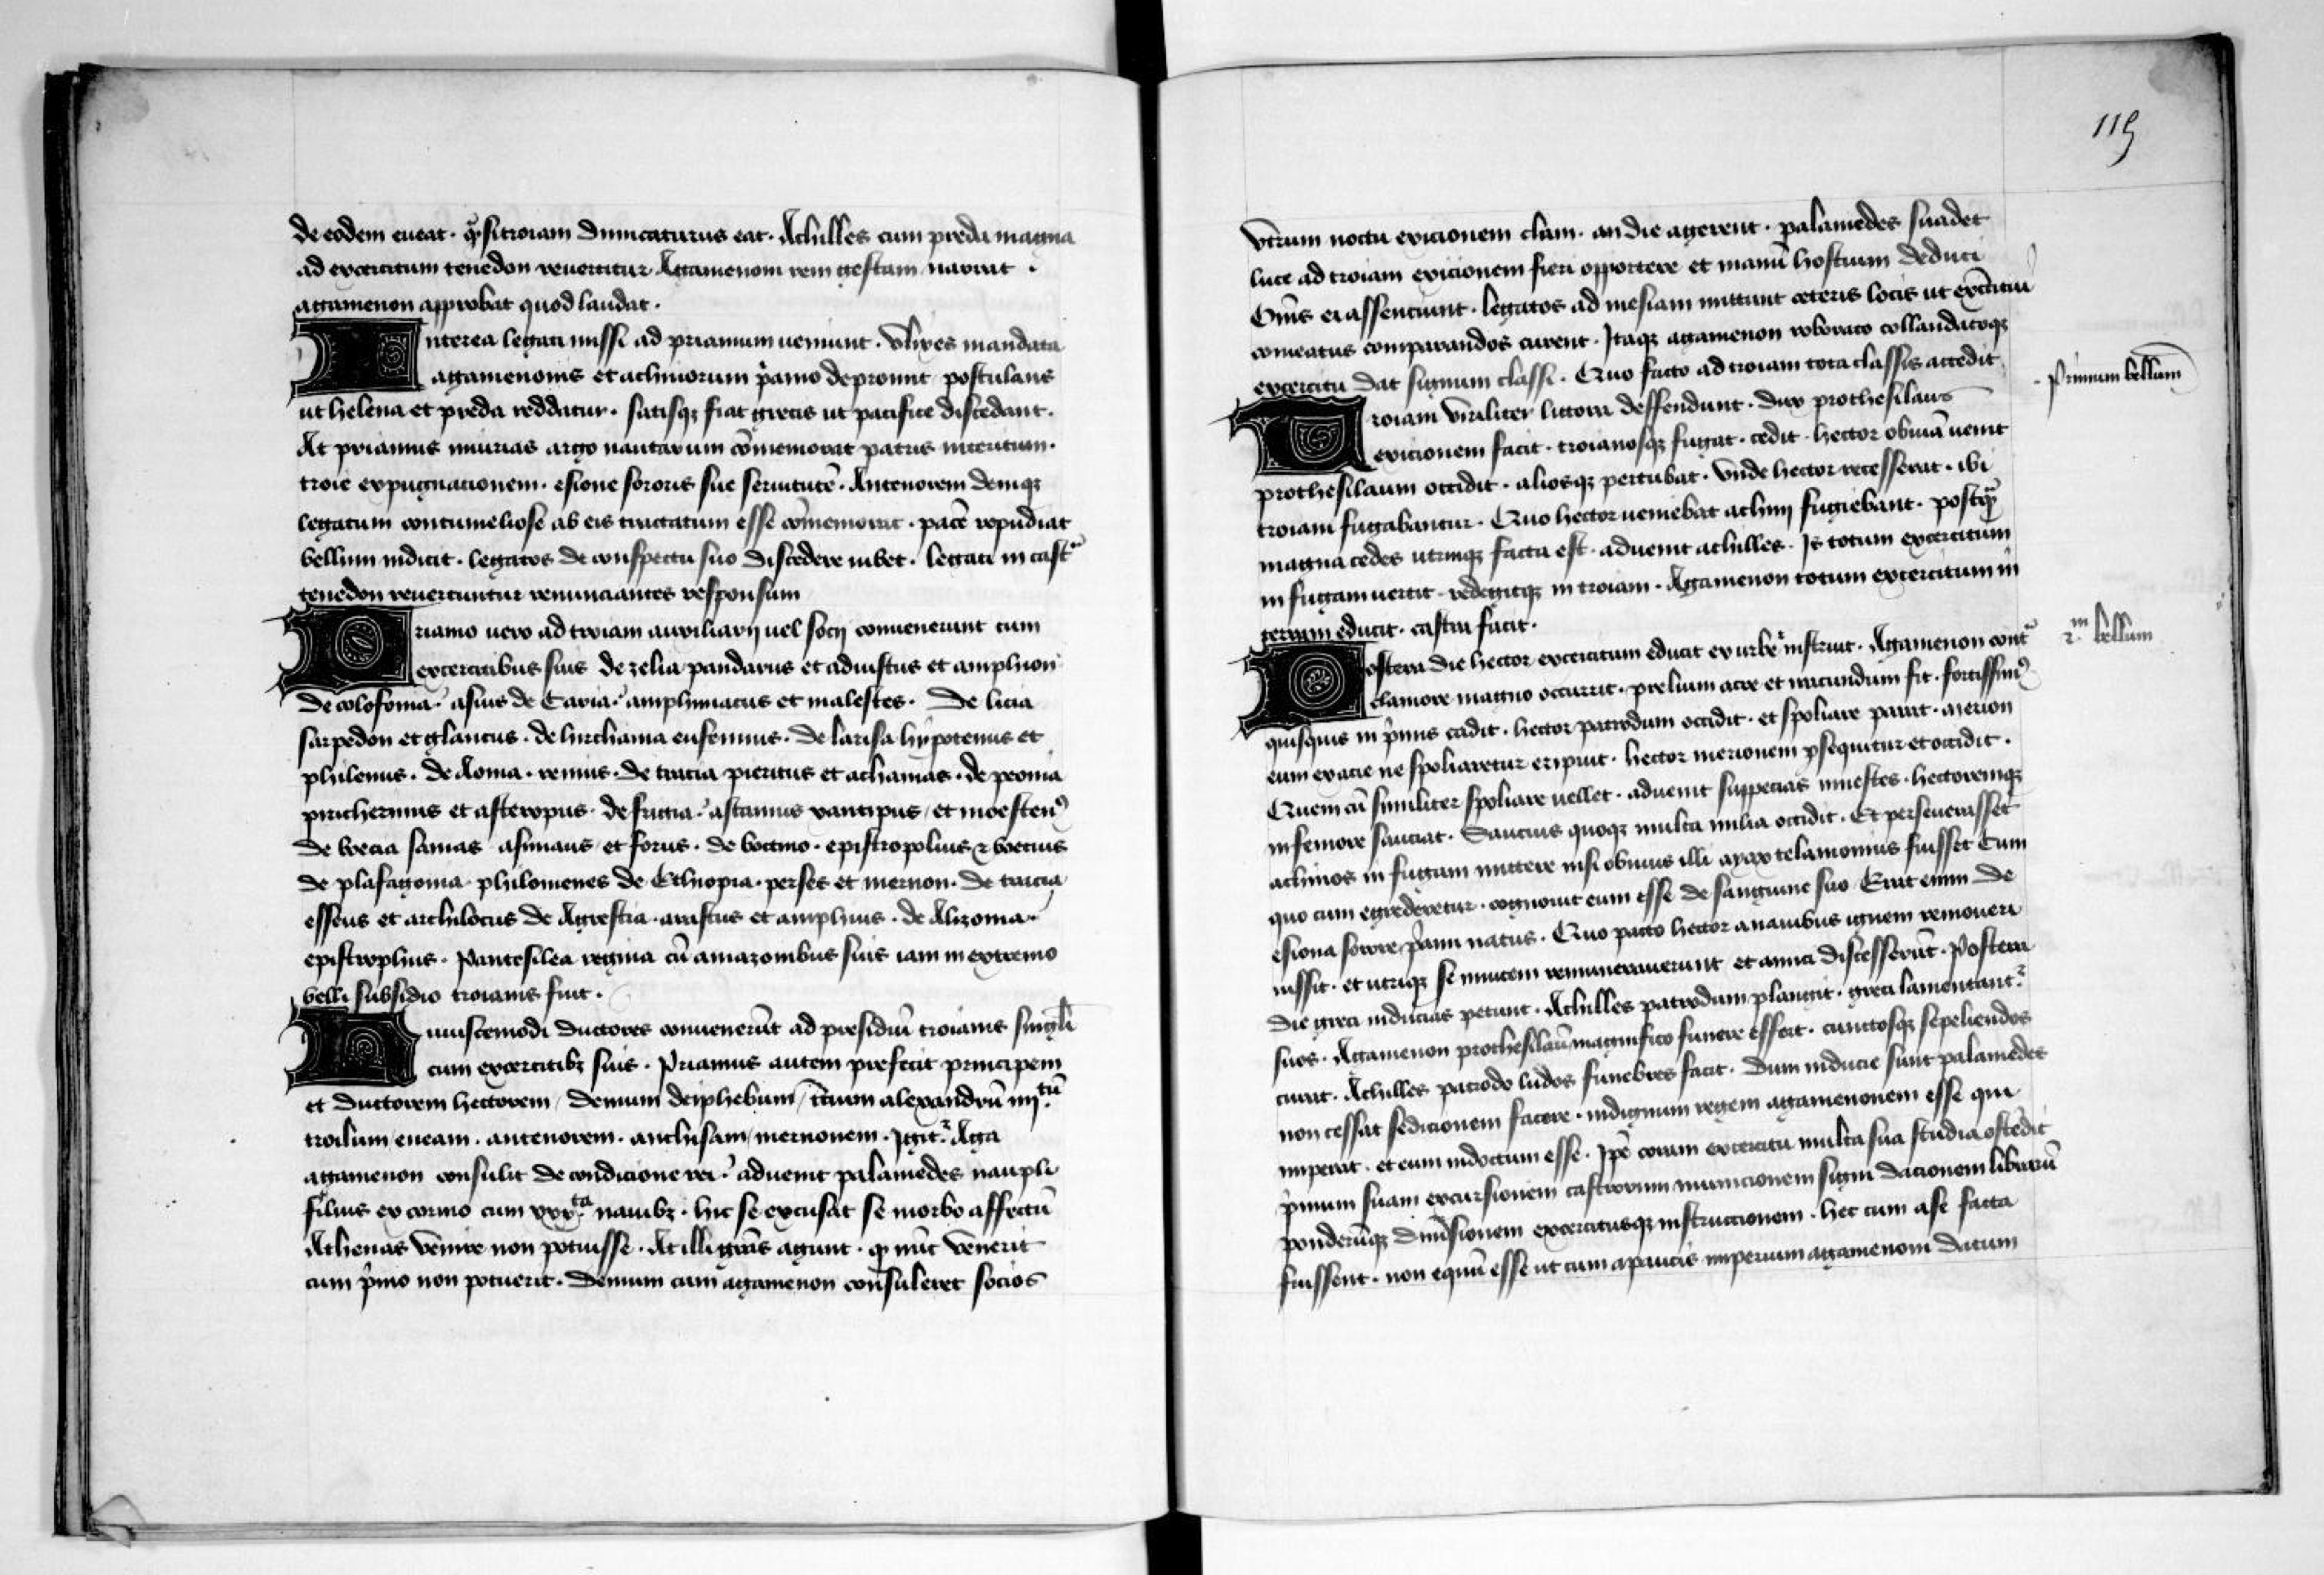 de eodem eueat. qͣ si troiam dimicaturus eat. Achilles cum preda magna
ad excercitum tenedon reuertitur Agamenoni rem gestam narrat .
agamenon approbat quod laudat.
Interea legati missi ad priamum ueniunt. Vlixes mandata
agamenonis et achiuorum p̍amo depromit postulans
ut helena et preda reddatur. satisqꝫ fiat grecis ut pacifice discedant.
At priamus iniurias argo nautarum co̅memorat patris interitum.
troie expugnacionem. esione sororis sue seruitute̅. Antenorem deniqꝫ
legatum contumeliose ab eis tractatum esse co̅memorat. pace̅ repudiat
bellum indicit. legatos de conspectu suo discedere iubet. legati in castͣ
tenedon reuertuntur renunciantes responsum
Priamo uero ad troiam auxiliarij uel socij conuenerunt cum
excercitibus suis de zelia pandarus et adrustus et amphion
de colofonia. asius de Caria. amphimacus et malestes. De licia
sarpedon et glaucus. de hirchania eufemius. de larisa hypotenus et
philenus. de donia. remus. de tracia pieritus et achamas. de peonia
pirichermus et asteropus. de frigia. ascanius xantipus et moesten⁹
de boecia samas asimaus et forus. de boctino. epistropolius ⁊ boecius
de plafagonia. philomenes de Ethiopia. perses et mernon. de tracia
esseus et archilocus de Agrestia. arastus et amphius. de Alizonia.
epistrophus. Pantesilea regina cu̅ amazonibus suis iam in extremo
belli subsidio troianis fuit.
Huiuscemodi ductores conueneru̅t ad presidiu̅ troianis singl̅i
cum excercitibꝫ suis. Priamus autem prefecit principem
et ductorem hectorem demum deiphebum t̅cium alexandru̅ iiijtu̅
troilum eneam. antenorem. anchisam mernonem. Igit᷑ Aga
agamenon consulit de condicione rei. aduenit palamedes naupli
filius ex cormo cum xxxta nauibꝫ. hic se excusat se morbo affectu̅
Athenas venire non potuisse. At illi gr̅as agunt. ꝙ nu̅c venerit
cum p̍mo non potuerit. Demum cum agamenon consuleret socios
119
vtrum noctu exicionem clam. an die agerent. palamedes suadet
luce ad troiam exicionem fieri opportere et manu̅ hostium deduci
Om̅s ei assenciunt. legatos ad mesiam mittunt ceteris locis ut exc̅citui
comeatus comparandos curent. Itaqꝫ agamenon roborato collaudatoqꝫ
excercitu dat signum classi. Quo facto ad troiam tota classis accedit
Primum bellum
Troiam viriliter littora deffendunt. dux prothesilaus
exicionem facit. troianosqꝫ fugat. cedit. hector obuia̅ uenit
prothesilaum occidit. aliosqꝫ pertubat. Vnde hector recesserat. ibi
troiam fugabantur. Quo hector ueniebat achiuj fugiebant. postqͣ
magna cedes utrinqꝫ facta est. aduenit achilles. Is totum excercitum
in fugam uertit. redegitqꝫ in troiam. Agamenon totum excercitum in
terram educit. castra facit.
2m bellum
Postera die hector excercitum educit ex urbe instruit. Agamenon contͣ
clamore magno occurrit. prelium acre et iracundum fit. fortissim⁹
quisquis in p̍mis cadit. hector patrodum occidit. et spoliare parat. merion
eum ex acie ne spoliaretur eripuit. hector merionem p̱sequitur et occidit.
Quem cu̅ similiter spoliare uellet. aduenit suppecias mnestes. hectoremqꝫ
in femore sauciat. Saucius quoqꝫ multa milia occidit. Et perseuerasset
achiuos in fugam mittere nisi obuius illi ayax telamonius fuisset Cum
quo cum egrederetur. cognouit eum esse de sanguine suo Erat enim de
esiona sorore p̍ami natus. Quo pacto hector a nauibus ignem remoueri
iussit. et utriqꝫ se inuicem remunerauerunt et amici discesseru̅t. Postera
die greci inducias petunt. Achilles patrodum plangit. greci lamentant᷑
suos. Agamenon prothesilau̅ magnifico funere effert. cunctosqꝫ sepeliendos
curat. Achilles patrodo ludos funebres facit. Dum inducie sunt palamedes
non cessat sedicionem facere. indignum regem agamenonem esse qui
imperat. et eum indoctum esse. Ip̅e coram excercitu multa sua studia oste̅dit
p̍mum suam excursionem castrorum municionem signi dacionem libraru̅
ponderu̅qꝫ dimi̅sionem excercitusqꝫ instruccionem. hec cum a se facta
fuissent. non equu̅ esse ut cum a paucis imperium agamenoni datum